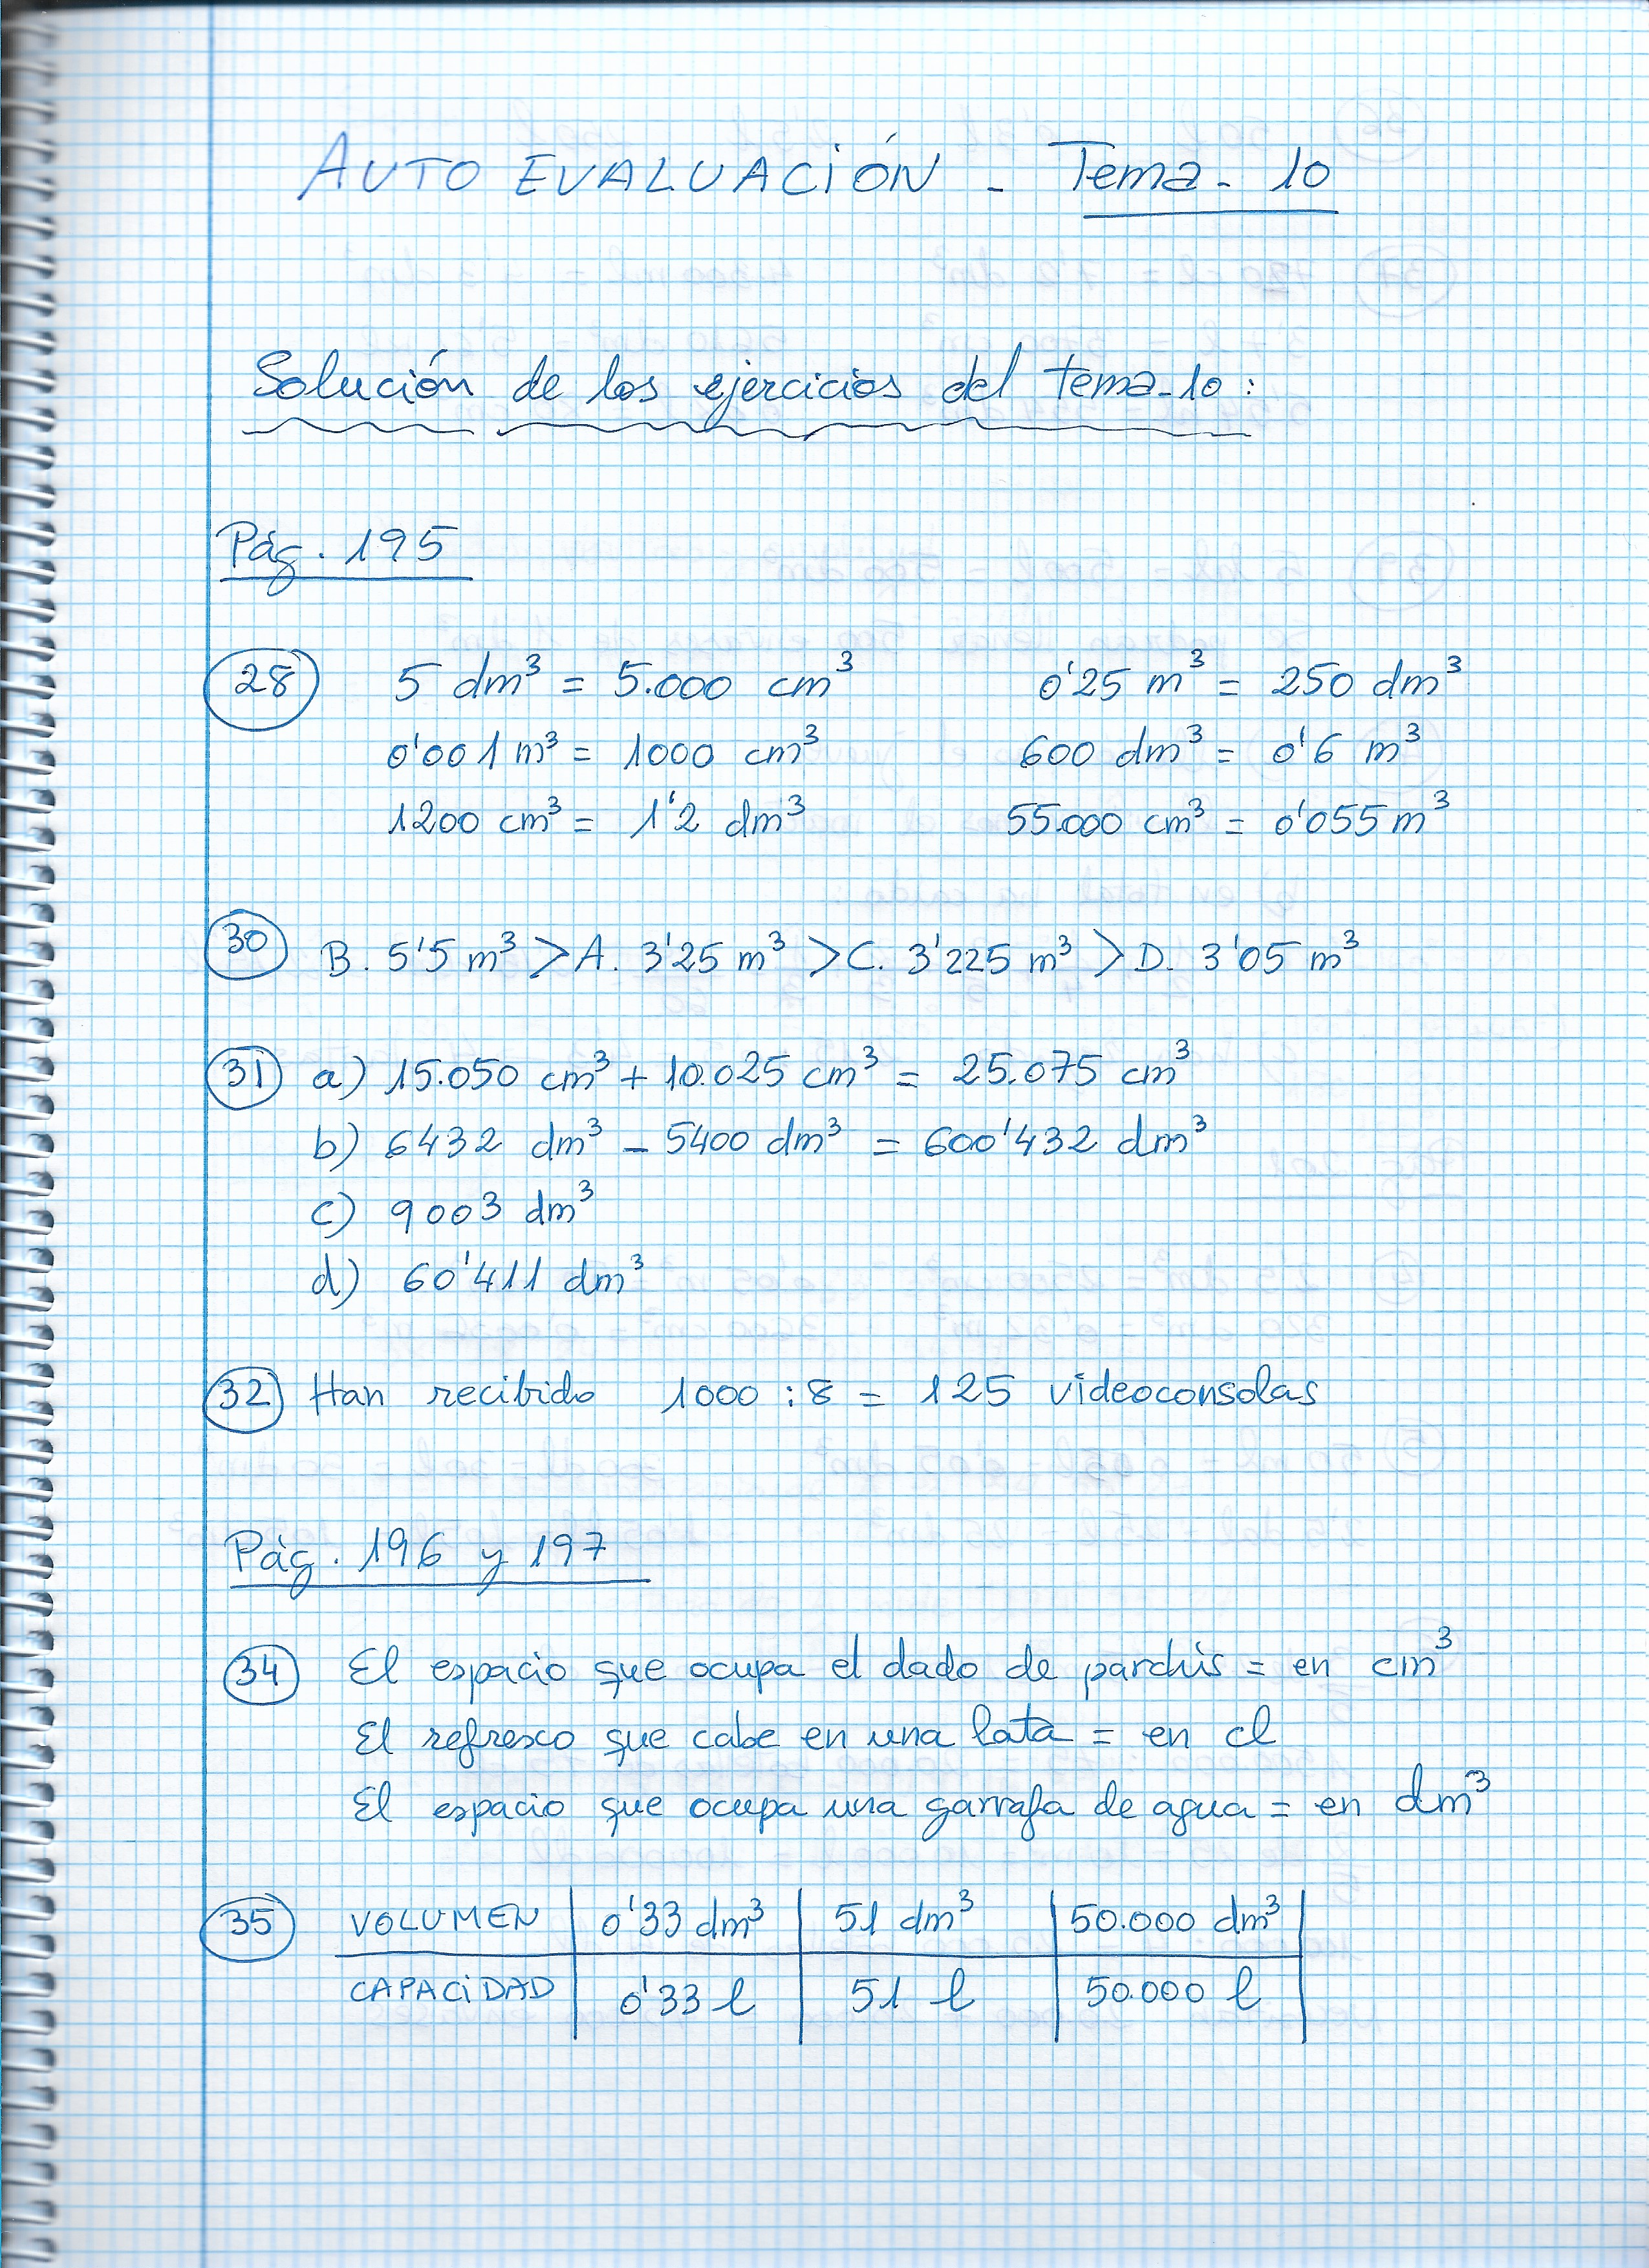 AUTO EVALUACIÓN - Tema - 10
Solución de los ejercicios del tema-10:
Pág. 195
28 5 dm³ = 5.000 cm³ 0'25 m³ = 250 dm³
0'001 m³ = 1000 cm³ 600 dm³ = 0'6 m³
1200 cm³ = 1'2 dm³ 55.000 cm³ = 0'055 m³
30 B. 5'5 m³ > A. 3'25 m³ > C. 3'225 m³ > D. 3'05 m³
31 a) 15.050 cm³ + 10.025 cm³ = 25.075 cm³
b) 6432 dm³ - 5400 dm³ = 600'432 dm³
c) 9003 dm³
d) 60'411 dm³
32 Han recibido 1000 : 8 = 125 videoconsolas
Pág. 196 y 197
34 El espacio que ocupa el dado de parchis = en cm³
El refresco que cabe en una lata = en cl
El espacio que ocupa una garrafa de agua = en dm³
35 VOLUMEN 0'33 dm³ 51 dm³ 50.000 dm³
CAPACIDAD 0'33 l 51 l 50.000 l